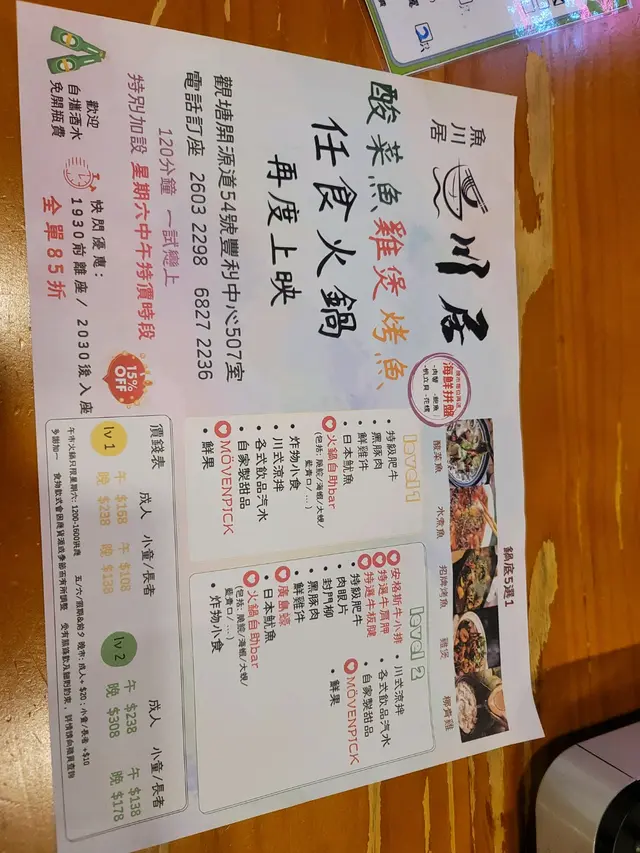 魚川居
川居
酸菜魚、雞煲、烤魚、
任食火鍋
再度上映
觀塘開源道54號豐利中心507室
電話訂座 2603 2298 6827 2236
120分鐘 一試戀上
特別加設 星期六中午特價時段
歡迎
自攜酒水
免開瓶費
快閃優惠：
1930前離座/ 2030後入座
全單85折
15%
OFF
海鮮拼盤
鍋底5選1
酸菜魚
水煮魚
招牌烤魚
雞煲
椰青雞
level 1
• 特級肥牛
• 黑豚肉
• 鮮雞件
• 日本魷魚
火鍋自助bar
• 炸物小食
• 川式涼拌
• 各式飲品汽水
• 自家製甜品
MÖVENPICK
• 鮮果
level 2
安格斯牛小排
特選牛肩胛
特選牛板腱
• 特級肥牛
• 肉眼片
• 封門柳
• 黑豚肉
• 鮮雞件
• 日本魷魚
廣島蠔
火鍋自助bar
• 炸物小食
• 川式涼拌
• 各式飲品汽水
• 自家製甜品
MÖVENPICK
• 鮮果
價錢表
成人 小童/長者
lv 1
午 $168 午 $108
晚 $238 晚 $138
成人 小童/長者
lv 2
午 $238 午 $138
晚 $308 晚 $178
午市火鍋只限星期六: 1200-1600供應
多謝加一